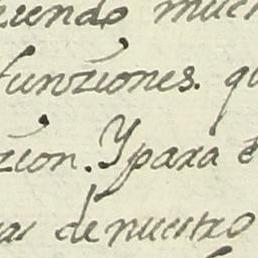 ziendo much
funziones. qu
zion. Y para e
as de nuestro